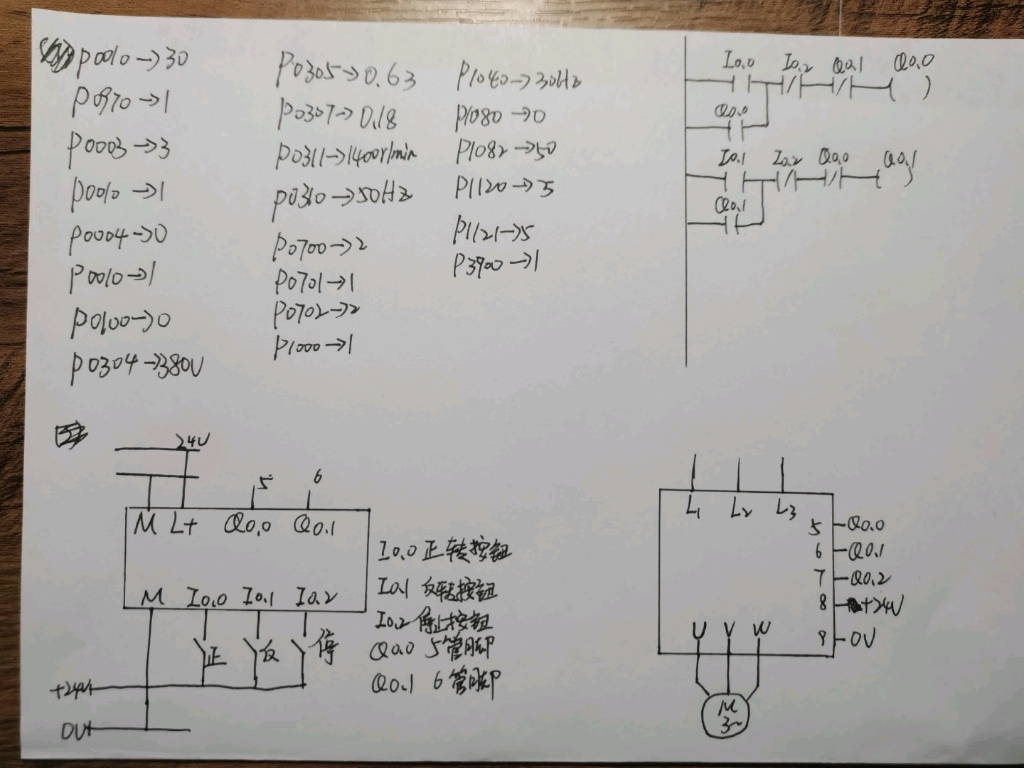 P0010→30
P0970→1
P0003→3
P0010→1
P0004→0
P0010→1
P0100→0
P0304→380V
P0305→0.63
P0307→0.18
P0311→1400r/min
P0310→50Hz
P0700→2
P0701→1
P0702→2
P1000→1
P1040→30Hz
P1080→0
P1082→50
P1120→5
P1121→5
P3900→1
I0.0 I0.2 Q0.1 Q0.0
Q0.0
I0.1 I0.2 Q0.0 Q0.1
Q0.1
24V
5 6
M L+ Q0.0 Q0.1
M I0.0 I0.1 I0.2
正 反 停
+24V
0V
I0.0 正转按钮
I0.1 反转按钮
I0.2 停止按钮
Q0.0 5管脚
Q0.1 6管脚
L1 L2 L3
5 Q0.0
6 Q0.1
7 Q0.2
8 +24V
9 0V
U V W
M
3~